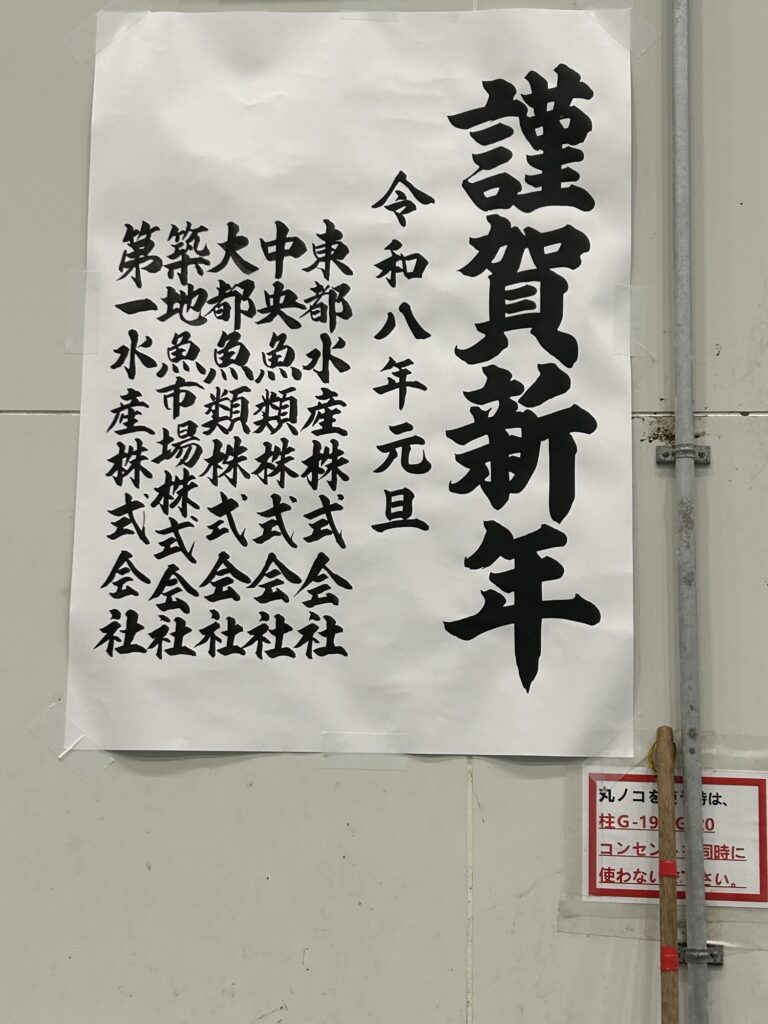 謹賀新年
令和八年元旦
東都水産株式会社
中央魚類株式会社
大都魚類株式会社
築地魚市場株式会社
第一水産株式会社
丸ノコを 時は、
柱G-19 G 20
コンセント 同時に
使わない さい。